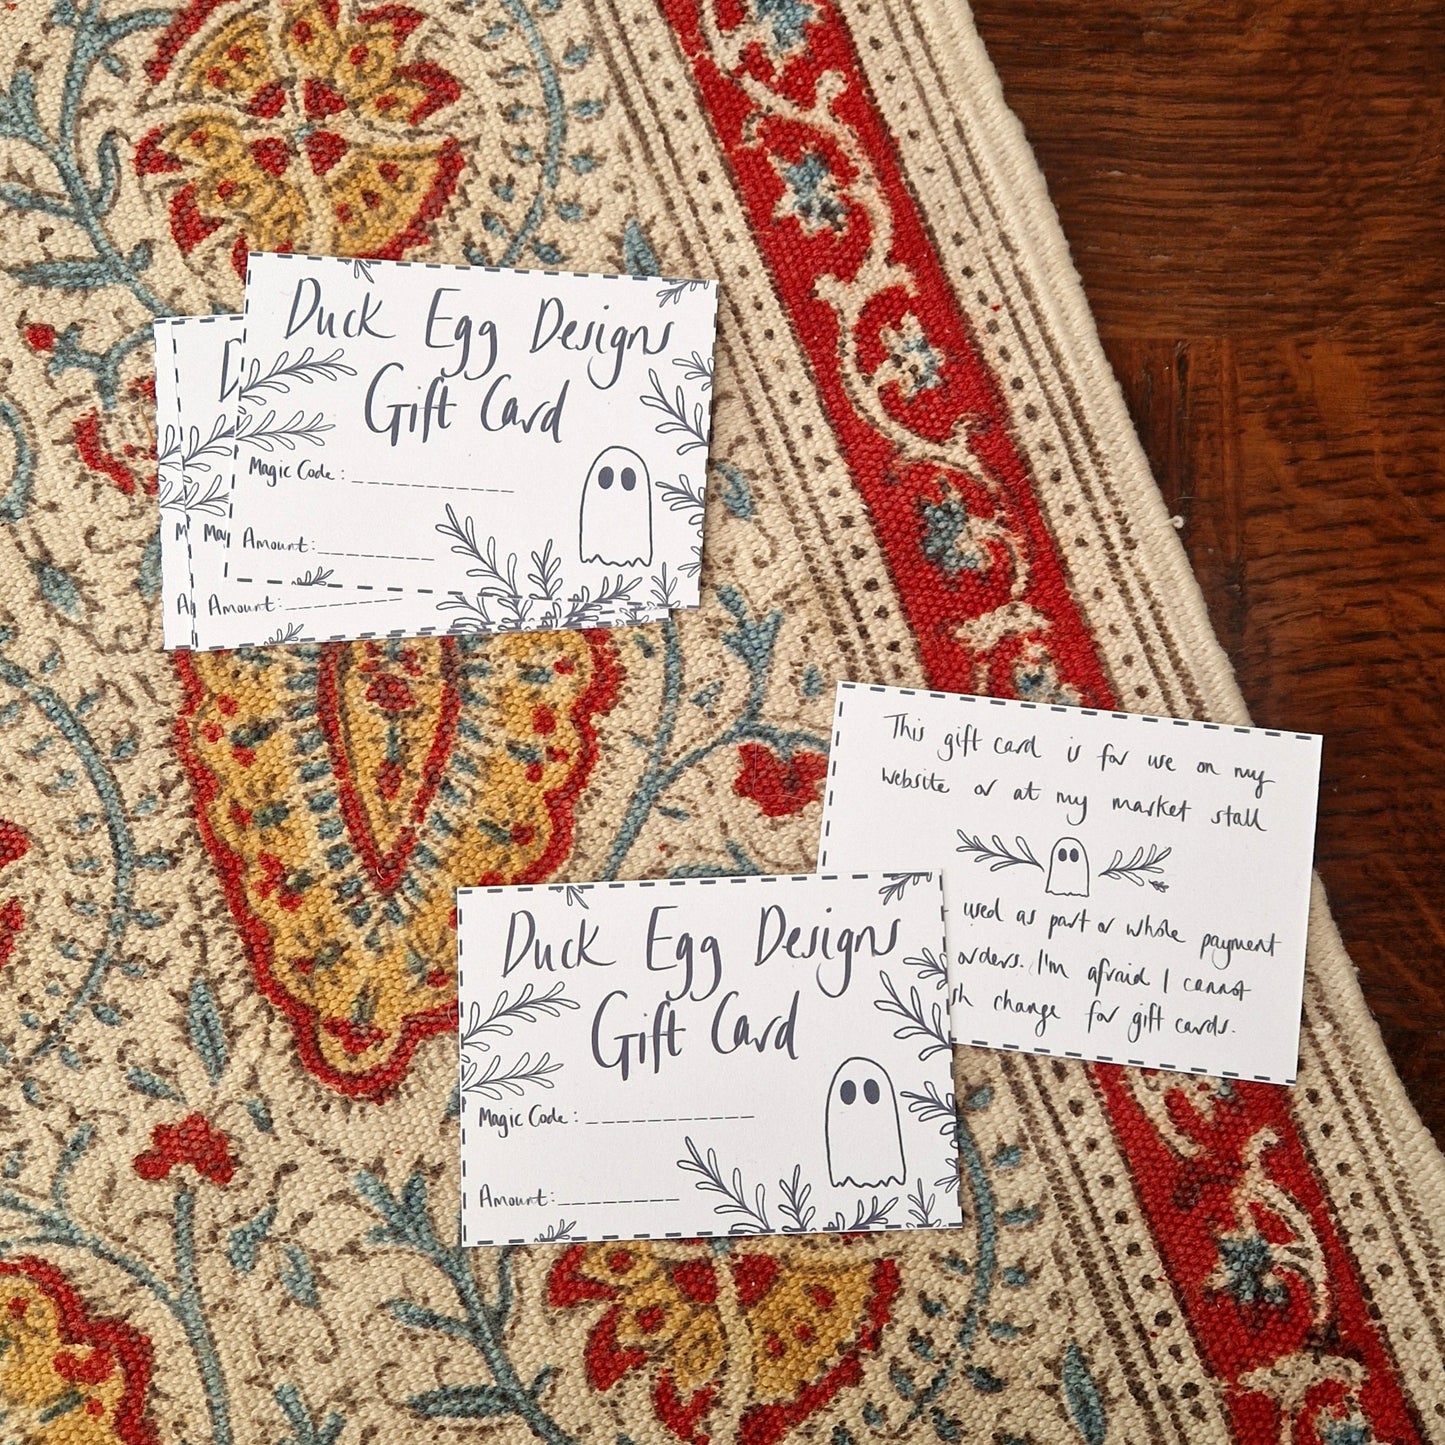 Duck Egg Designs
Gift Card
Magic Code:
Amount:
Amount:
This gift card is for use on my
website or at my market stall
used as part or whole payment
orders. I'm afraid I cannot
change for gift cards.
Duck Egg Designs
Gift Card
Magic Code:
Amount: